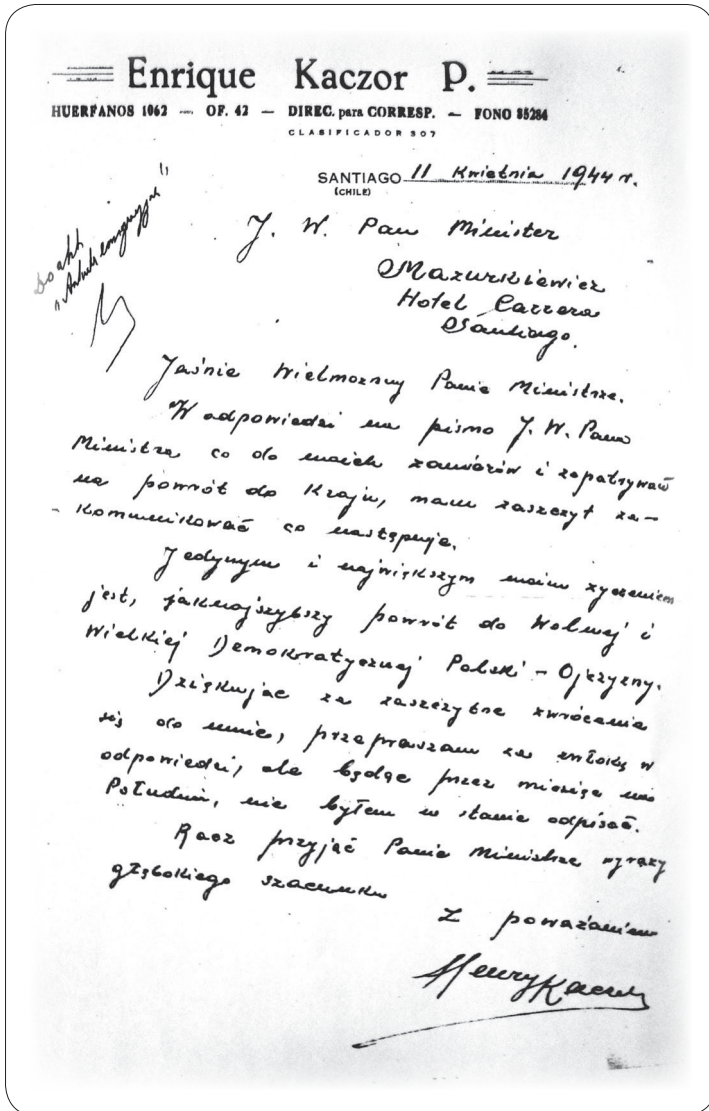 Enrique Kaczor P.
HUERFANOS 1062 — OF. 42 — DIREC. para CORRESP. — FONO 85284
CLASIFICADOR 307
SANTIAGO 11 Kwietnia 1944 r.
(CHILE)
Do akt
J. W. Pan Minister
Mazurkiewicz
Hotel Carrera
Santiago.
Jaśnie Wielmożny Panie Ministrze.
W odpowiedzi na pismo J. W. Pana
Ministra co do moich zamiarów i zapatrywań
na powrót do Kraju, mam zaszczyt za-
komunikować co następuje.
Jedynym i największym moim życzeniem
jest, jaknajszybszy powrót do Wolnej i
Wielkiej Demokratycznej Polski - Ojczyzny.
Dziękując za zaszczytne zwrócenie
się do mnie, przepraszam za zwłokę w
odpowiedzi, ale będąc przez miesiąc na
Południu, nie byłem w stanie odpisać.
Racz przyjąć Panie Ministrze wyrazy
głębokiego szacunku
Z poważaniem
Henry Kaczor